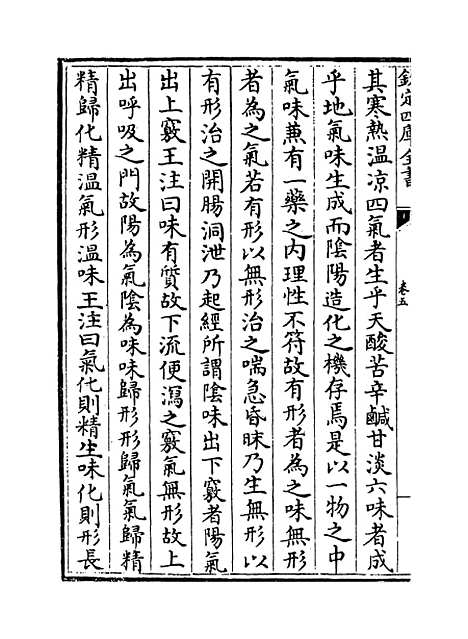 欽定四庫全書
卷五
其寒熱温凉四氣者生乎天酸苦辛鹹甘淡六味者成
乎地氣味生成而陰陽造化之機存焉是以一物之中
氣味兼有一藥之内理性不符故有形者為之味無形
者為之氣若有形以無形治之喘急昏昧乃生無形以
有形治之開腸洞泄乃起經所謂陰味出下竅者陽氣
出上竅王注曰味有質故下流便瀉之竅氣無形故上
出呼吸之門故陽為氣陰為味味歸形形歸氣氣歸精
精歸化精温氣形温味王注曰氣化則精生味化則形長